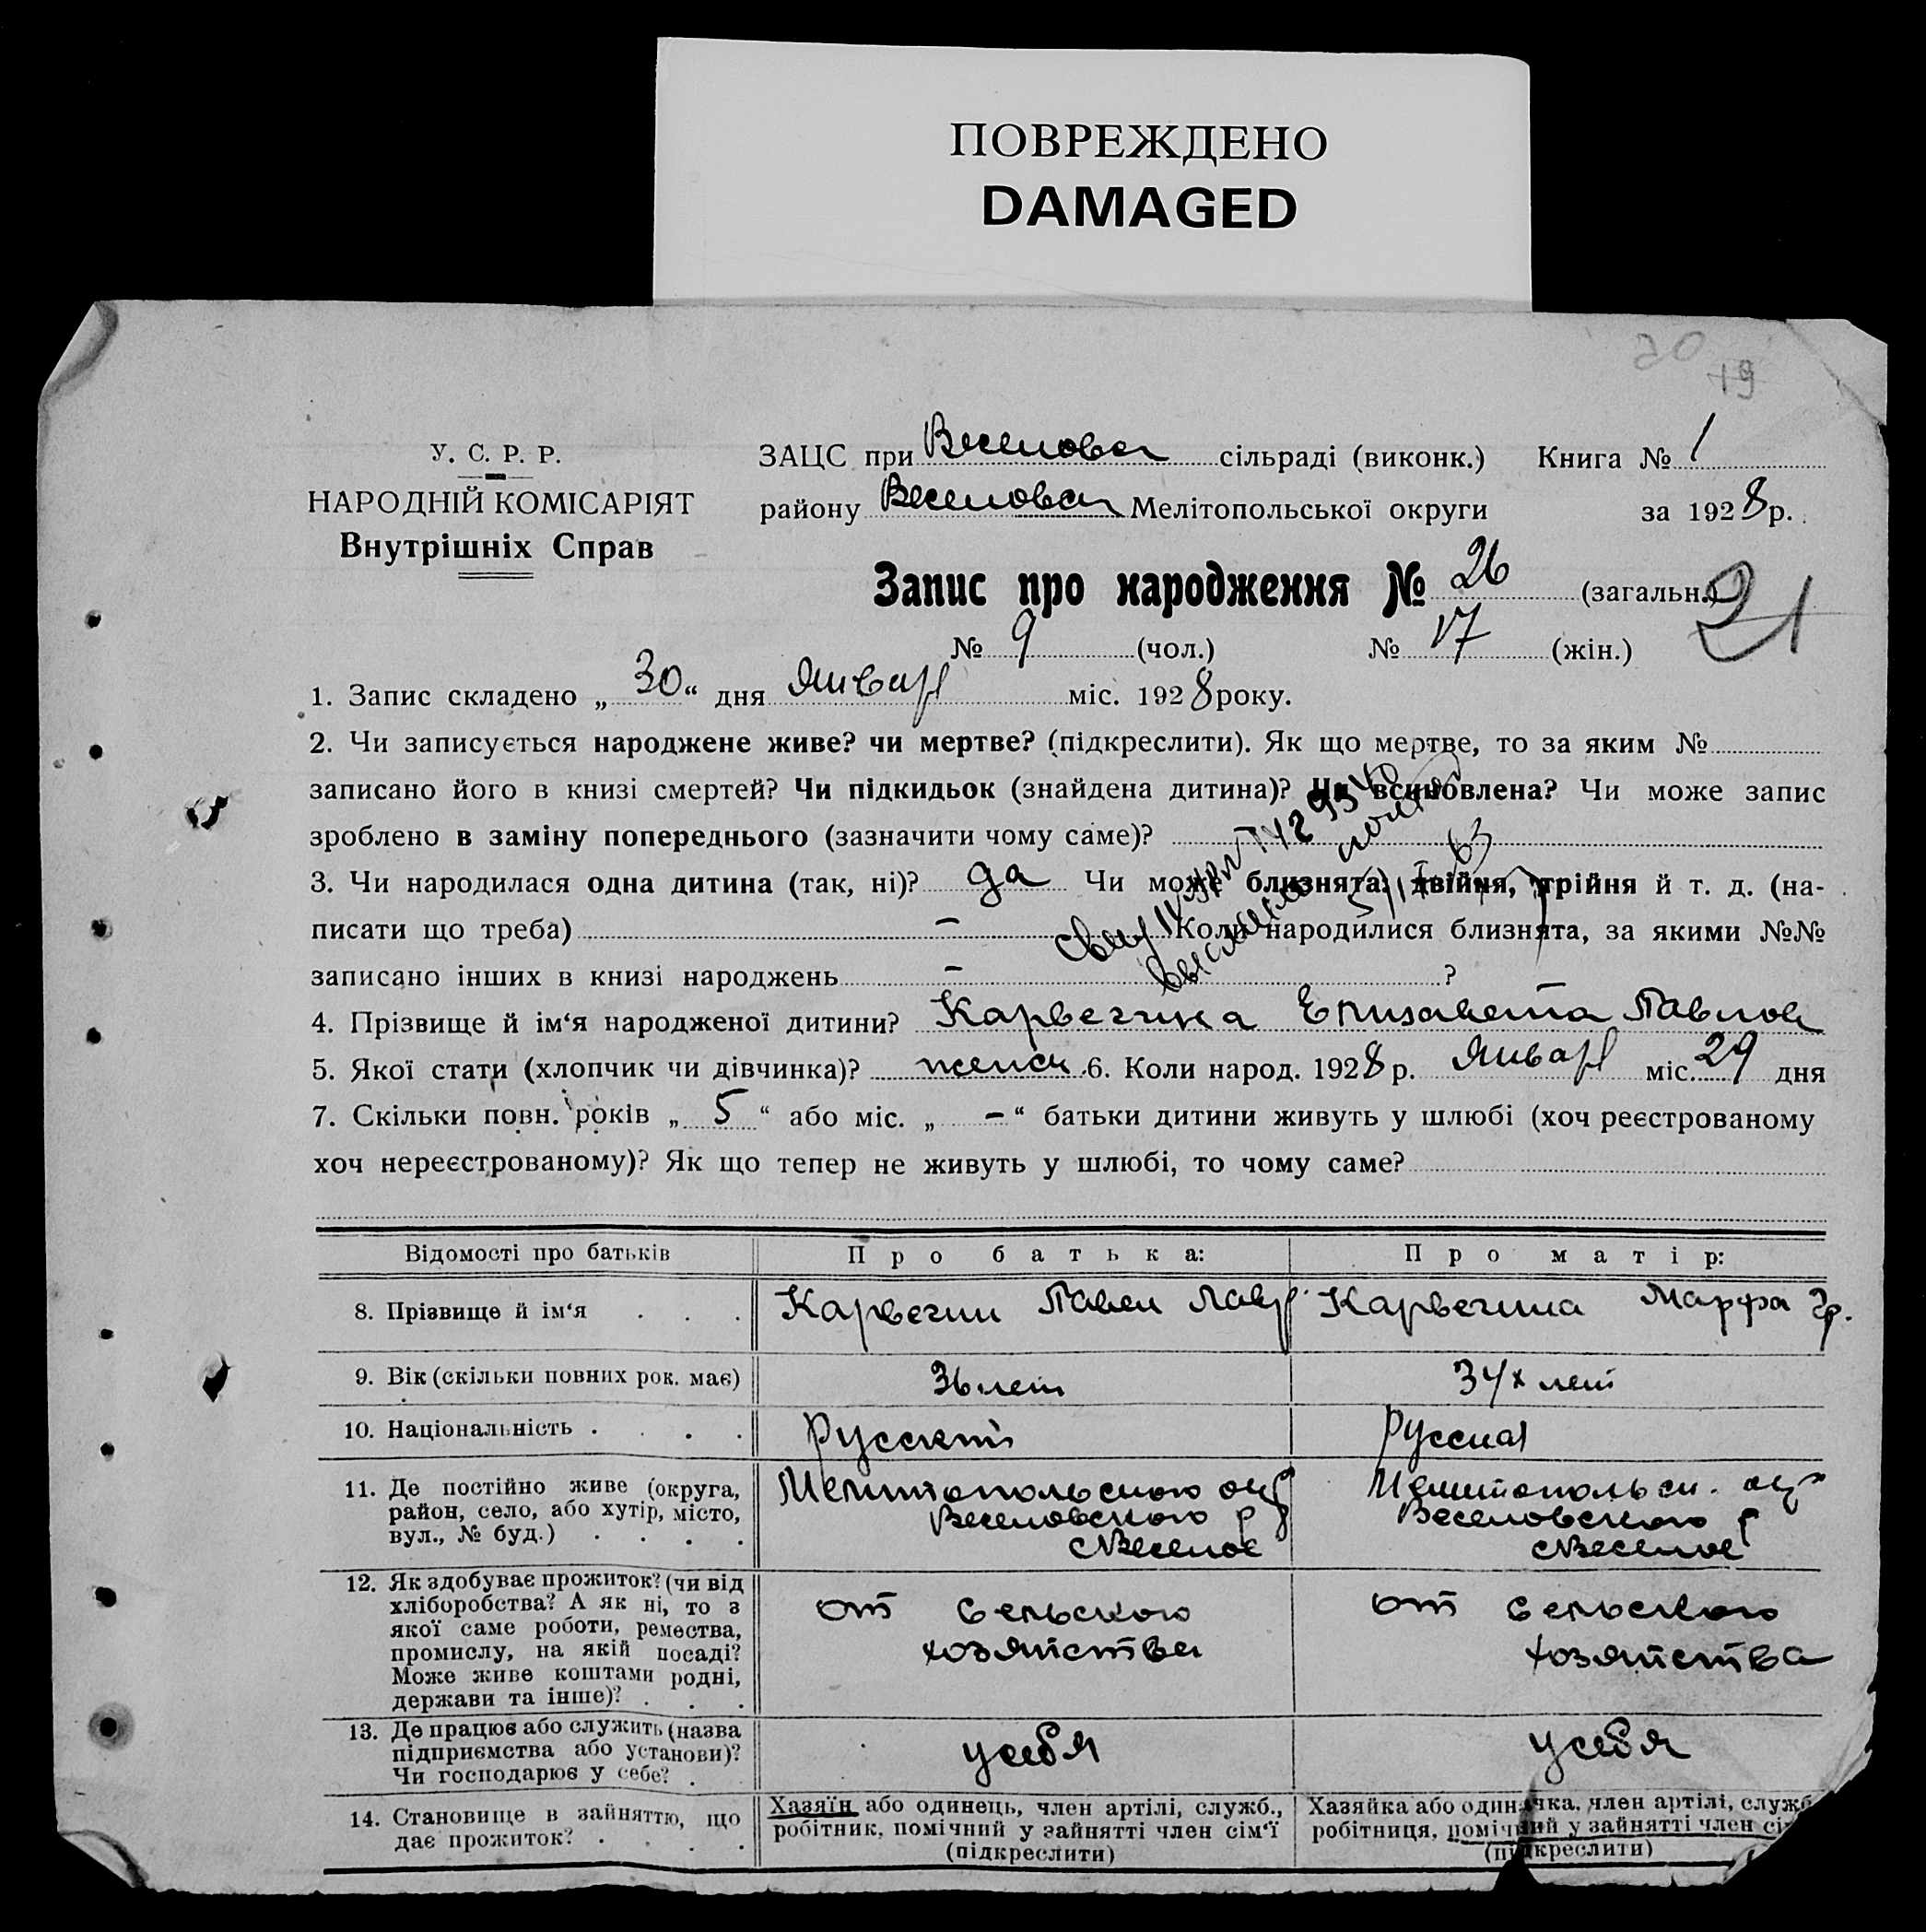 ПОВРЕЖДЕНО
DAMAGED
19
У. С. Р. Р.
НАРОДНІЙ КОМІСАРІЯТ
Внутрішніх Справ
ЗАЦС при Веселовск сільраді (виконк.) Книга № 1
району Веселовск Мелітопольської округи за 1928 р.
Запис про народження № 26 (загальн.) 21
№ 9 (чол.) № 17 (жін.)
1. Запис складено „ 30 “ дня Январ міс. 1928 року.
2. Чи записується народжене живе? чи мертве? (підкреслити). Як що мертве, то за яким №
записано його в книзі смертей? Чи підкидьок (знайдена дитина)? Чи всиновлена? Чи може запис
зроблено в заміну попереднього (зазначити чому саме)?
3. Чи народилася одна дитина (так, ні)? да Чи може близнята, двійня, трійня й т. д. (на-
писати що треба) – Коли народилися близнята, за якими №№
записано інших в книзі народжень – ?
4. Прізвище й ім‘я народженої дитини? Карвечина Елизавета Павлов
5. Якої стати (хлопчик чи дівчинка)? женск 6. Коли народ. 1928 р. Январ міс. 29 дня
7. Скільки повн. років „ 5 “ або міс. „ – “ батьки дитини живуть у шлюбі (хоч реєстрованому
хоч нереєстрованому)? Як що тепер не живуть у шлюбі, то чому саме?
Відомості про батьків Про батька: Про матір:
8. Прізвище й ім‘я . . . Карвечин Павел Лавр. Карвечина Марфа Гр.
9. Вік (скільки повних рок. має) 36 лет 34х лет
10. Національність . . . . Русский Русская
11. Де постійно живе (округа, район, село, або хутір, місто, вул., № буд.) . . . . Мелитопольского окр Веселовского р с Веселое Мелитопольск. окр Веселовского р с Веселое
12. Як здобуває прожиток? (чи від хліборобства? А як ні, то з якої саме роботи, ремества, промислу, на якій посаді? Може живе коштами родні, держави та інше)? . . . от сельского хозяйства от сельского хозяйства
13. Де працює або служить (назва підприємства або установи)? Чи господарює у себе? . у себя у себя
14. Становище в зайняттю, що дає прожиток? . . . . Хазяїн або одинець, член артілі, служб., робітник, помічний у зайнятті член сім‘ї (підкреслити) Хазяйка або одиначка, член артілі, служб робітниця, помічний у зайнятті член сі (підкреслити)